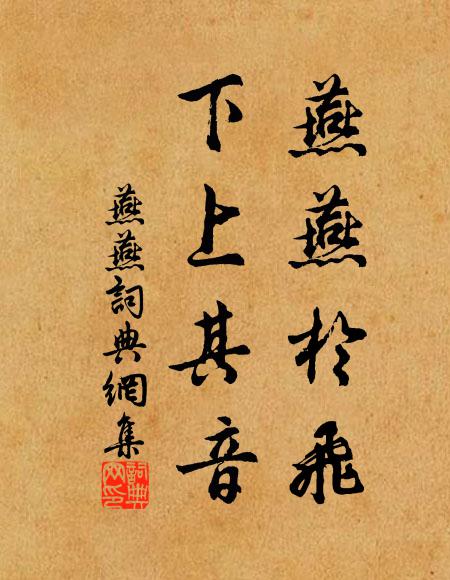 燕燕於飛
下上其音
燕燕詞典網集
詞典網印